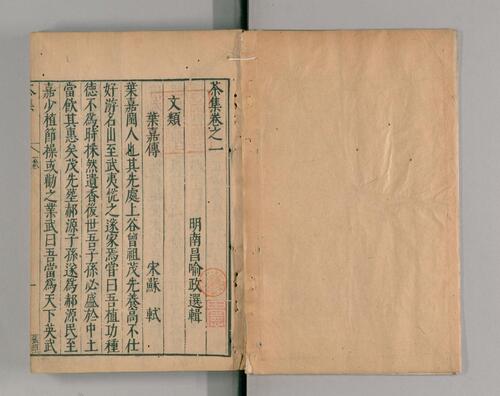 茶集卷之一
明南昌喻政選輯
文類
葉嘉傳
宋蘇軾
葉嘉閩人也其先處上谷曾祖茂先養高不仕
好游名山至武夷恱之遂家焉嘗曰吾植功種
德不為時採然遺香後世吾子孫必盛於中土
當飲其惠矣茂先塟郝源子孫遂為郝源民至
嘉少植節操或勸之業武曰吾當為天下英武